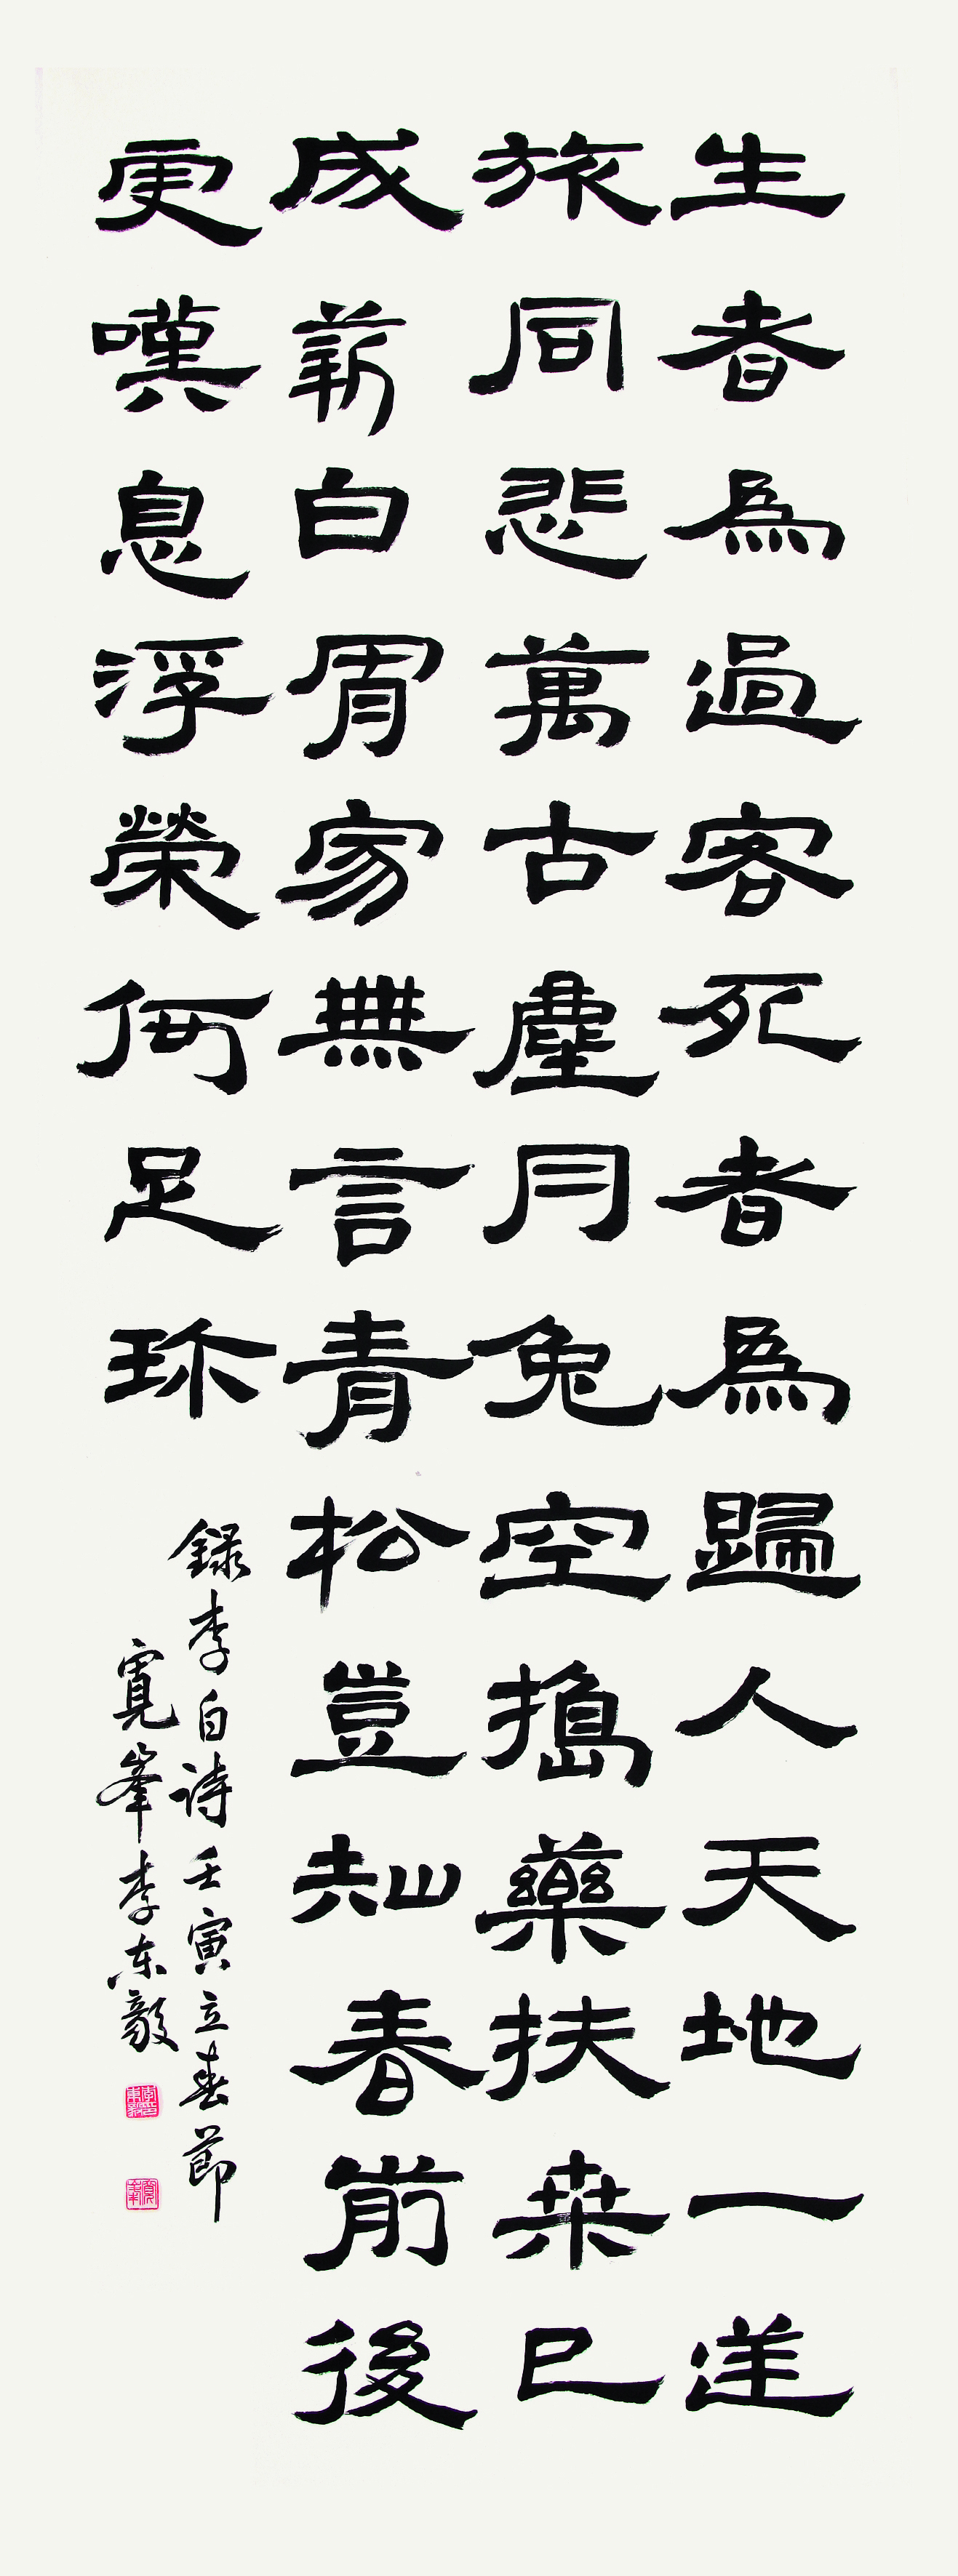 生者為過客死者為歸人天地一逆
旅同悲萬古塵月兔空搗藥扶桒已
成薪白骨寂無言青松豈知春前後
更嘆息浮榮何足珎
錄李白诗壬寅立春節
寬峯李东毅